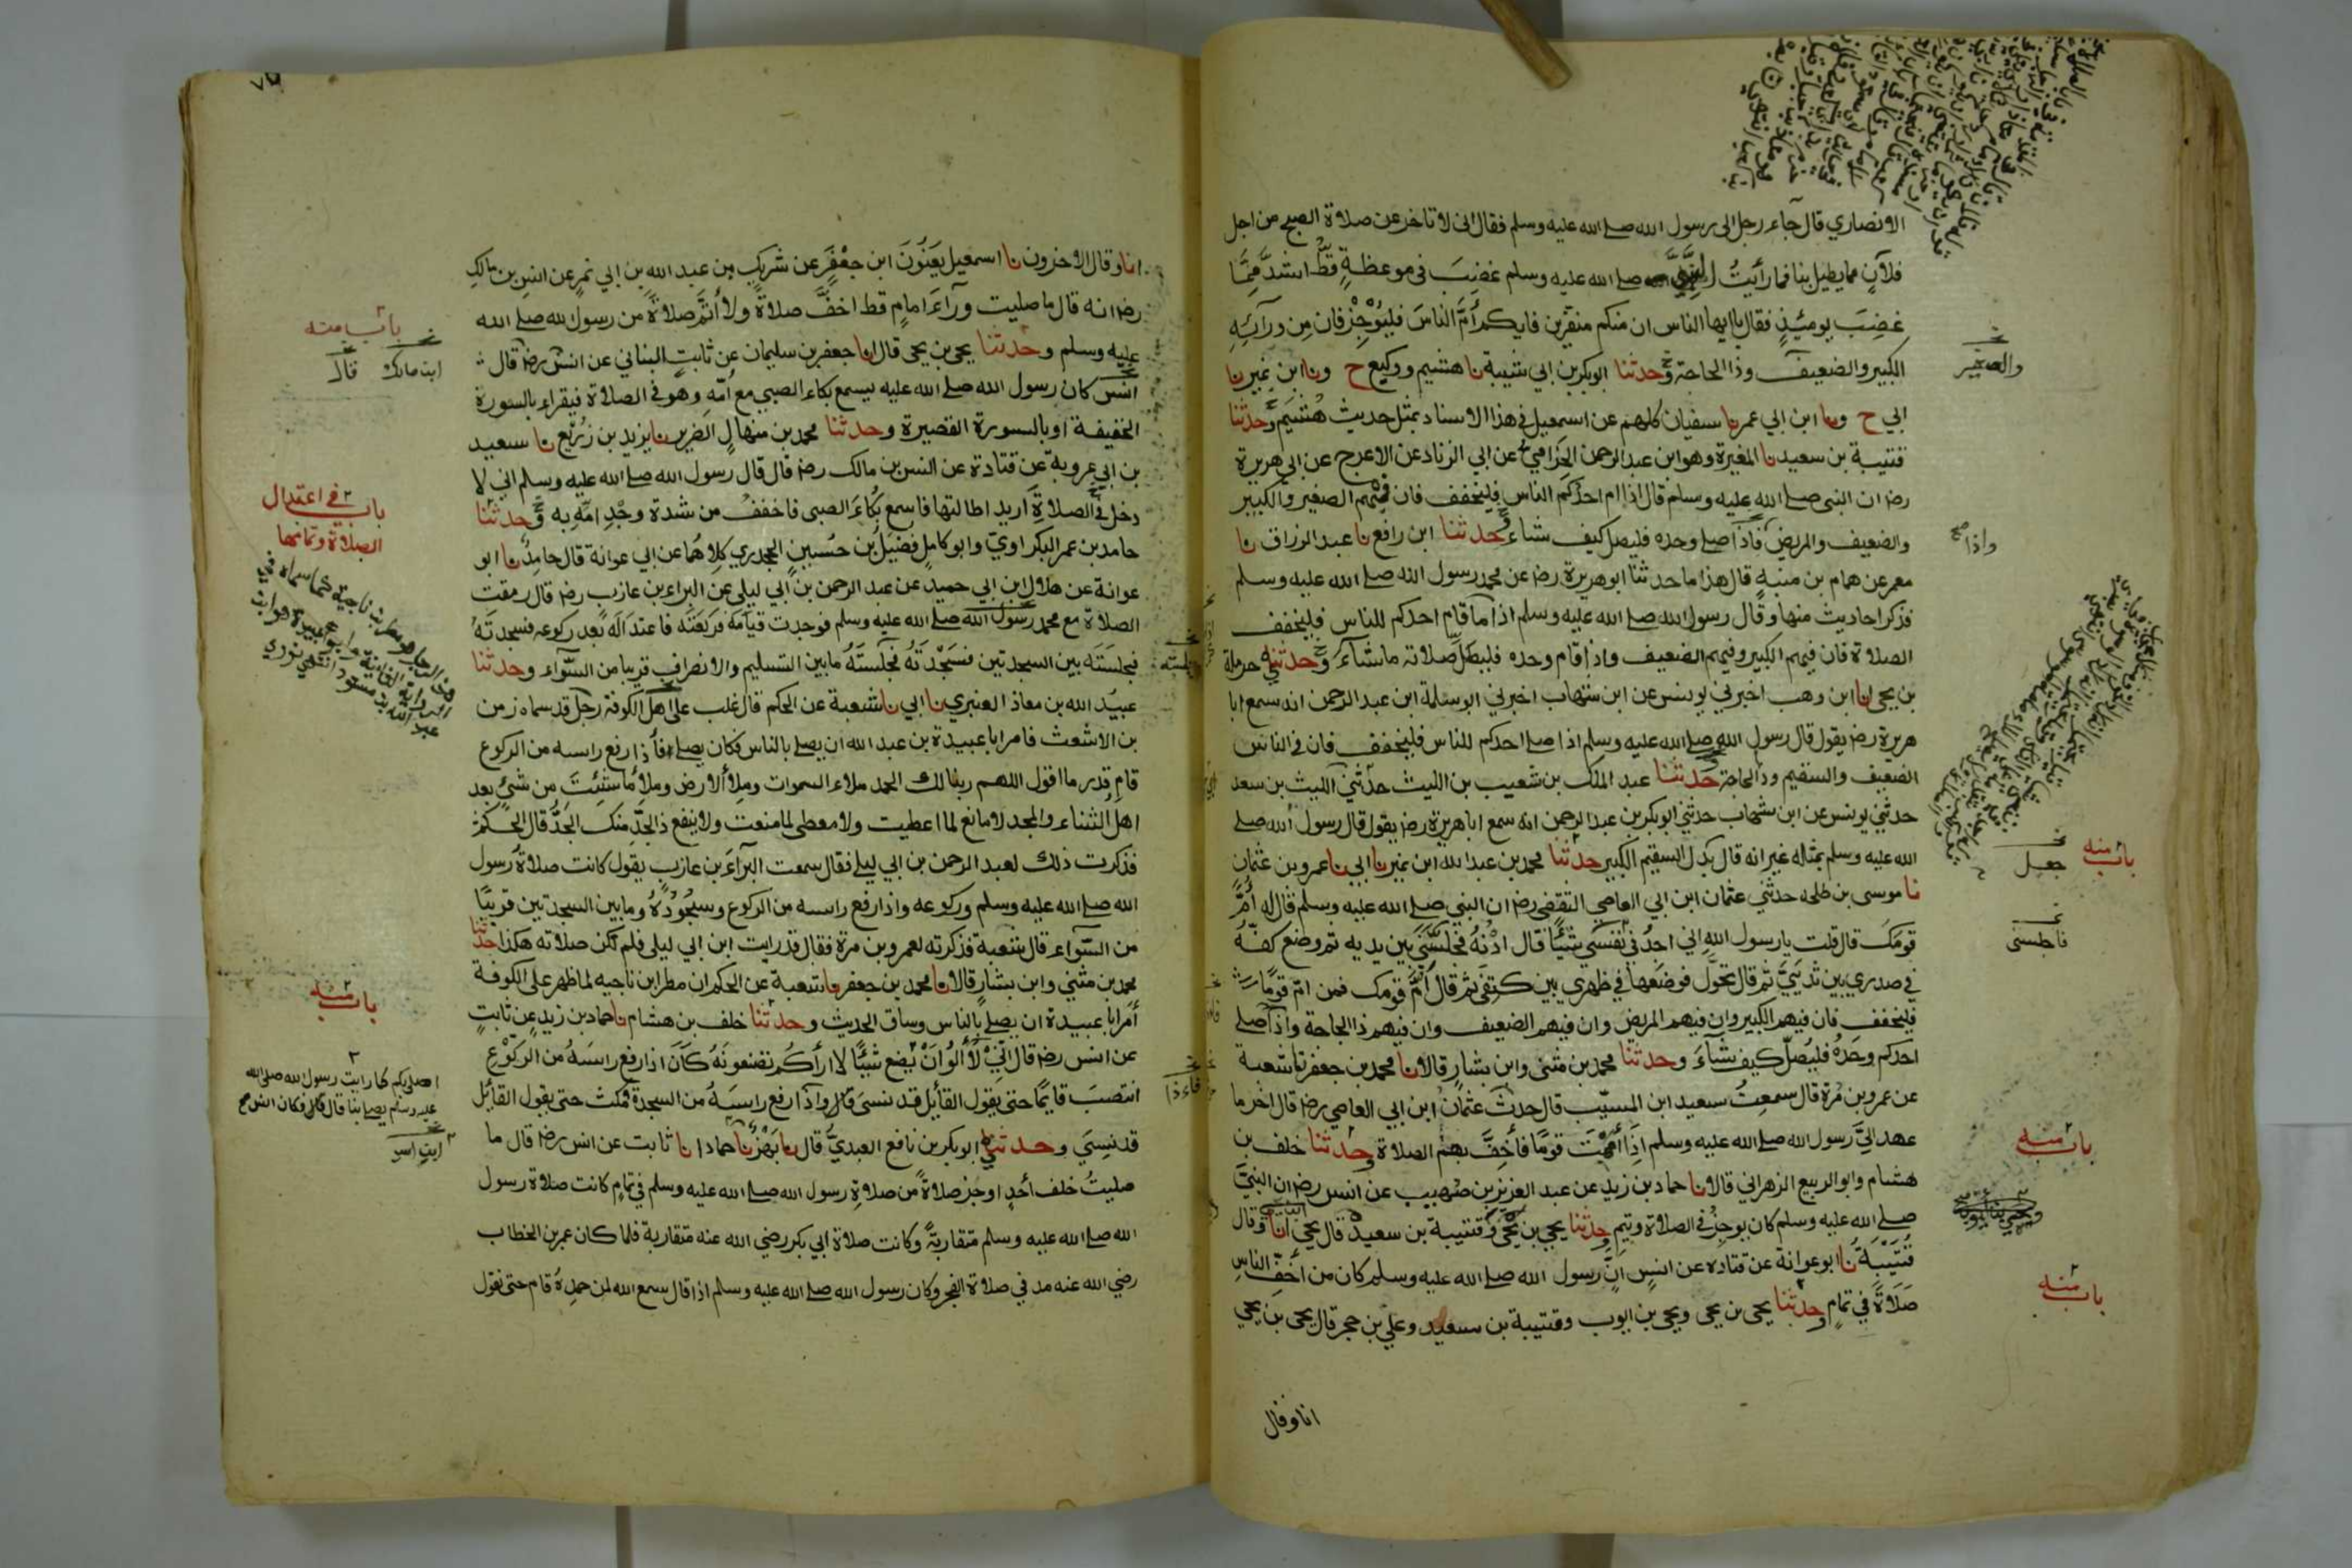 الانصاري قال جاء رجل الى رسول الله صلے الله عليه وسلم فقال انى لاتاخر عن صلاة الصبح من اجل
فلان مما يطيل بنا فما رأيت النبي صلے الله عليه وسلم غضب فى موعظة قط اشد مما
غضب يومئذ فقال ياايها الناس ان منكم منفرين فايكم أم الناس فليوجز فان من ورائه
الكبير والضعيف وذا الحاجة وحدثنا ابوبكر بن ابي شيبة نا هشيم ووكيع ح ونا ابن نمير نا
ابي ح ونا ابن ابي عمر نا سفيان كلهم عن اسمعيل في هذا الاسناد بمثل حديث هشيم وحدثنا
قتيبة بن سعيد نا المغيرة وهو ابن عبد الرحمن الحزامي عن ابي الزناد عن الاعرج عن ابى هريرة
رضا ان النبي صلے الله عليه وسلم قال اذا ام احدكم الناس فليخفف فان فيهم الصغير والكبير
والضعيف والمريض فاذا صلے وحده فليصل كيف شاء وحدثنا ابن رافع نا عبد الرزاق نا
معمر عن همام بن منبه قال هذا ما حدثنا ابو هريرة رضا عن محمد رسول الله صلے الله عليه وسلم
فذكر احاديث منها وقال رسول الله صلے الله عليه وسلم اذا ما قام احدكم للناس فليخفف
الصلاة فان فيهم الكبير وفيهم الضعيف واذا قام وحده فليصل صلاته ما شاء وحدثني حرملة
بن يحى انا ابن وهب اخبرني يونس عن ابن شهاب اخبرني ابو سلمة ابن عبد الرحمن انه سمع ابا
هريرة رضا يقول قال رسول الله صلے الله عليه وسلم اذا صلے احدكم للناس فليخفف فان فى الناس
الضعيف والسقيم وذا الحاجة وحدثنا عبد الملك بن شعيب بن الليث حدثني الليث بن سعد
حدثني يونس عن ابن شهاب حدثني ابوبكر بن عبد الرحمن انه سمع ابا هريرة رضا يقول قال رسول الله صلے
الله عليه وسلم بمثله غير انه قال بدل السقيم الكبير حدثنا محمد بن عبد الله ابن نمير نا ابي نا عمرو بن عثمان
نا موسى بن طلحة حدثني عثمان ابن ابي العاصي الثقفي رضا ان النبي صلے الله عليه وسلم قال له أم
قومك قال قلت يارسول الله اني اجد في نفسي شيئا قال ادنه فجلسني بين يديه ثم وضع كفه
في صدري بين ثديي ثم قال تحول فوضعها في ظهري بين كتفي ثم قال أم قومك فمن ام قوما
فليخفف فان فيهم الكبير وان فيهم المريض وان فيهم الضعيف وان فيهم ذا الحاجة واذا صلے
احدكم وحده فليصل كيف شاء وحدثنا محمد بن مثنى وابن بشار قالا نا محمد بن جعفر نا شعبة
عن عمرو بن مرة قال سمعت سعيد ابن المسيب قال حدث عثمان ابن ابي العاصي رضا قال اخر ما
عهد الي رسول الله صلے الله عليه وسلم اذا أممت قوما فأخف بهم الصلاة وحدثنا خلف بن
هشام وابو الربيع الزهراني قالا نا حماد بن زيد عن عبد العزيز بن صهيب عن انس رضا ان النبي
صلے الله عليه وسلم كان يوجز في الصلاة ويتم وحدثنا يحيى بن يحيى وقتيبة بن سعيد قال يحيى انا وقال
قتيبة نا ابو عوانة عن قتادة عن انس ان رسول الله صلے الله عليه وسلم كان من أخف الناس
صلاة في تمام وحدثنا يحيى بن يحيى ويحيى بن ايوب وقتيبة بن سعيد وعلي بن حجر قال يحيى بن يحيى
انا وقال
والصغير
واذا
باب منه
جعل
فاجلسنى
باب منه
باب منه
انا وقال الاخرون نا اسمعيل يعنون ابن جعفر عن شريك بن عبد الله بن ابي نمر عن انس بن مالك
رضا انه قال ما صليت وراء امام قط اخف صلاة ولا أتم صلاة من رسول الله صلے الله
عليه وسلم وحدثنا يحيى بن يحيى قال انا جعفر بن سليمان عن ثابت البناني عن انس رضا قال
انس كان رسول الله صلے الله عليه يسمع بكاء الصبي مع أمه وهو في الصلاة فيقراء بالسورة
الخفيفة او بالسورة القصيرة وحدثنا محمد بن منهال الضرير نا يزيد بن زريع نا سعيد
بن ابي عروبة عن قتادة عن انس بن مالك رضا قال قال رسول الله صلے الله عليه وسلم اني لا
دخل في الصلاة اريد اطالتها فاسمع بكاء الصبى فاخفف من شدة وجد امه به وحدثنا
حامد بن عمر البكراوي وابو كامل فضيل بن حسين الجحدري كلاهما عن ابي عوانة قال حامد نا ابو
عوانة عن هلال بن ابي حميد عن عبد الرحمن بن ابي ليلى عن البراء بن عازب رضا قال رمقت
الصلاة مع محمد رسول الله صلے الله عليه وسلم فوجدت قيامه فركعته فاعتداله بعد ركوعه فسجدته
فجلسته بين السجدتين فسجدته فجلسته مابين التسليم والانصراف قريبا من السواء وحدثنا
عبيد الله بن معاذ العنبري نا ابي نا شعبة عن الحكم قال غلب على اهل الكوفة رجل قد سماه زمن
بن الاشعث فامر ابا عبيدة بن عبد الله ان يصلے بالناس فكان يصلے فاذا رفع راسه من الركوع
قام قدر ما اقول اللهم ربنا لك الحمد ملاء السموات وملأ الارض وملأ ماشئت من شئ بعد
اهل الثناء والمجد لا مانع لما اعطيت ولا معطى لما منعت ولا ينفع ذا الجد منك الجد قال الحكم
فذكرت ذلك لعبد الرحمن بن ابي ليلے فقال سمعت البراء بن عازب يقول كانت صلاة رسول
الله صلے الله عليه وسلم وركوعه واذا رفع راسه من الركوع وسجوده ومابين السجدتين قريبا
من السواء قال شعبة فذكرته لعمرو بن مرة فقال قد رايت ابن ابي ليلى فلم تكن صلاته هكذا حدثنا
محمد بن مثنى وابن بشار قالا نا محمد بن جعفر نا شعبة عن الحكم ان مطر ابن ناجيه لما ظهر على الكوفة
أمر ابا عبيدة ان يصلے بالناس وساق الحديث وحدثنا خلف بن هشام نا حماد بن زيد عن ثابت
عن انس رضا قال اني لا ألو ان
انتصب قايما حتى يقول القايل قد نسي قال واذا رفع راسه من السجدة مكث حتى يقول القايل
قد نسي وحدثني ابوبكر بن نافع العبدي قال نا بهز نا حماد انا ثابت عن انس رضا قال ما
صليت خلف أحد اوجز صلاة من صلاة رسول الله صلے الله عليه وسلم في تمام كانت صلاة رسول
الله صلے الله عليه وسلم متقاربة وكانت صلاة ابي بكر رضي الله عنه متقاربة فلما كان عمر بن الخطاب
رضي الله عنه مد في صلاة الفجر وكان رسول الله صلے الله عليه وسلم اذا قال سمع الله لمن حمده قام حتى نقول
باب منه
ابن مالك
باب في اعتدال
الصلاة وتمامها
باب منه
اصلي بكم كما رايت رسول الله صلى الله
عليه وسلم يصلے بنا قال فكان انس